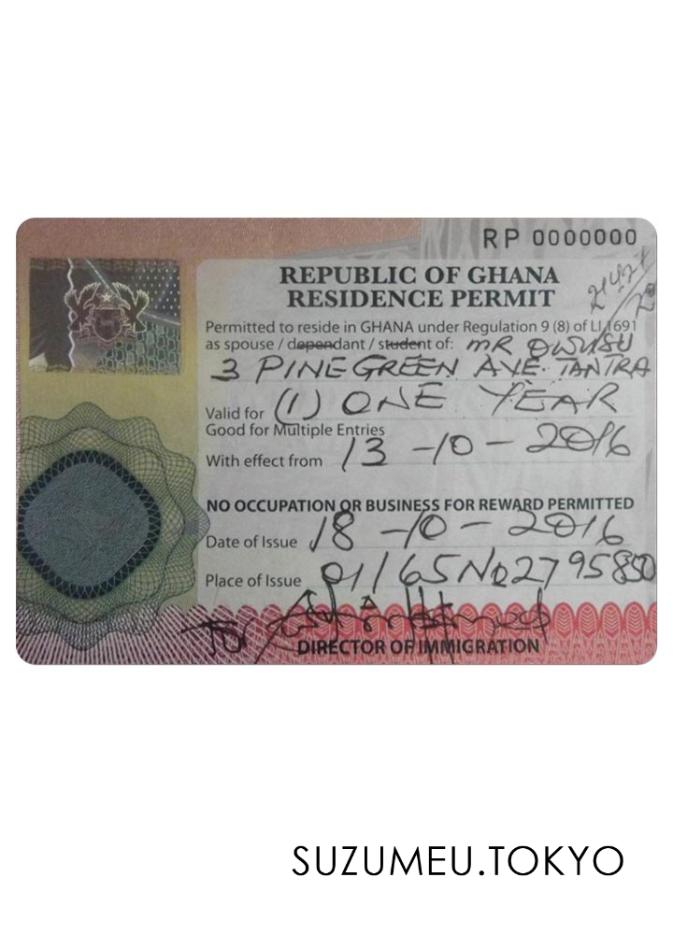 RP 0000000
REPUBLIC OF GHANA
RESIDENCE PERMIT
Permitted to reside in GHANA under Regulation 9 (8) of LI 1691
as spouse / dependant / student of: MR OWUSU
3 PINEGREEN AVE. TANTRA
Valid for (1) ONE YEAR
Good for Multiple Entries
With effect from 13-10-2016
NO OCCUPATION OR BUSINESS FOR REWARD PERMITTED
Date of Issue 18-10-2016
Place of Issue 01165No2795850
DIRECTOR OF IMMIGRATION
SUZUMEU.TOKYO